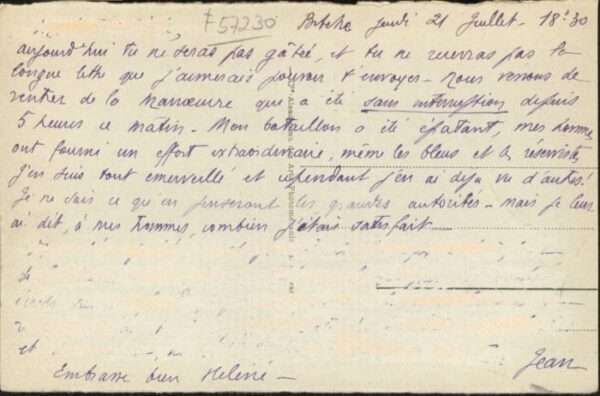 F 57230
Bitche jeudi 21 Juillet - 18h30
aujourd'hui tu ne seras pas gâtée, et tu ne recevras pas la
longue lettre que j'aimerais pouvoir t'envoyer - nous venons de
rentrer de la manœuvre qui a été sans interruption depuis
5 heures ce matin - Mon bataillon a été épatant, mes hommes
ont fourni un effort extraordinaire, même les bleus et les réservistes
J'en suis tout émerveillé et cependant j'en ai déjà vu d'autres!
Je ne sais ce qu'en penseront les grandes autorités - mais je leur
ai dit, à mes hommes, combien j'étais satisfait
et
Embrasse bien Hélène -
Jean